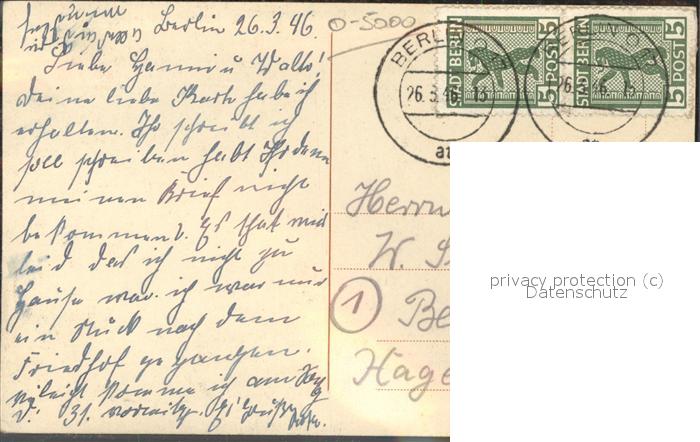 Berlin 26.3.46.
Liebe Hanni u Walter!
Deine liebe Karte habe ich
erhalten. Ihr schreibt ich
soll schreiben habt Ihr denn
meinen Brief nicht
bekommen. Es that mir
leid das ich nicht zu
Hause war. ich war nur
ein Stück nach dem
Friedhof gegangen.
vileicht komme ich am
d. 31. vormittg. Es grüßt
0-5000
BERLIN
26.3.46.
STADT BERLIN
5 POST 5
STADT BERLIN
5 POST 5
Herrn
W.
1
Be
Hage
privacy protection (c)
Datenschutz